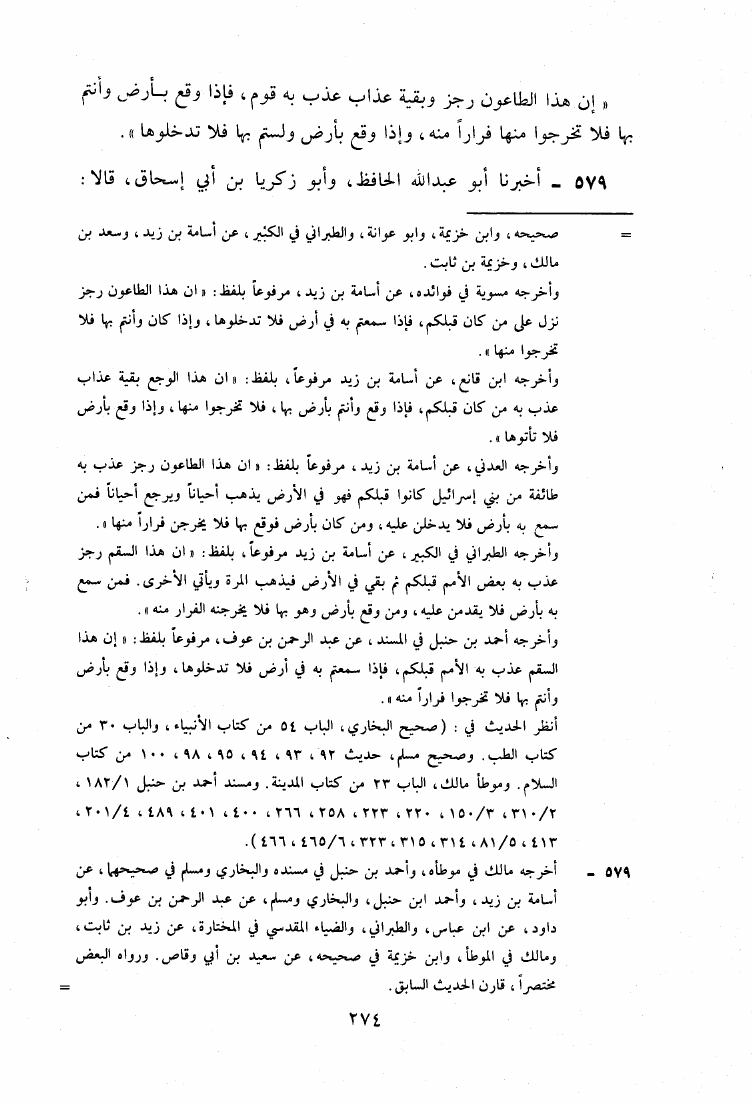 « إن هذا الطاعون رجز وبقية عذاب عذب به قوم، فإذا وقع بـأرض وأنتم
بها فلا تخرجوا منها فراراً منه، وإذا وقع بأرض ولستم بها فلا تدخلوها».
٥٧٩ - أخبرنا أبو عبدالله الحافظ، وأبو زكريا بن أبي إسحاق، قالا:
= صحيحه، وابن خزيمة، وابو عوانة، والطبراني في الكبير، عن أسامة بن زيد، وسعد بن
مالك، وخزيمة بن ثابت.
وأخرجه مسوية في فوائده، عن أسامة بن زيد، مرفوعاً بلفظ: « ان هذا الطاعون رجز
نزل على من كان قبلكم، فإذا سمعتم به في أرض فلا تدخلوها، وإذا كان وأنتم بها فلا
تخرجوا منها».
وأخرجه ابن قانع، عن أسامة بن زيد مرفوعاً، بلفظ: « ان هذا الوجع بقية عذاب
عذب به من كان قبلكم، فإذا وقع وأنتم بأرض بها، فلا تخرجوا منها، وإذا وقع بأرض
فلا تأتوها».
وأخرجه العدني، عن أسامة بن زيد، مرفوعاً بلفظ: « ان هذا الطاعون رجز عذب به
طائفة من بني إسرائيل كانوا قبلكم فهو في الأرض يذهب أحياناً ويرجع أحياناً فمن
سمع به بأرض فلا يدخلن عليه، ومن كان بأرض فوقع بها فلا يخرجن فراراً منها».
وأخرجه الطبراني في الكبير، عن أسامة بن زيد مرفوعاً، بلفظ: « ان هذا السقم رجز
عذب به بعض الأمم قبلكم ثم بقي في الأرض فيذهب المرة ويأتي الأخرى. فمن سمع
به بأرض فلا يقدمن عليه، ومن وقع بأرض وهو بها فلا يخرجنه الفرار منه».
وأخرجه أحمد بن حنبل في المسند، عن عبد الرحمن بن عوف، مرفوعاً بلفظ: « إن هذا
السقم عذب به الأمم قبلكم، فإذا سمعتم به في أرض فلا تدخلوها، وإذا وقع بأرض
وأنتم بها فلا تخرجوا فراراً منه».
أنظر الحديث في: (صحيح البخاري، الباب ٥٤ من كتاب الأنبياء، والباب ٣٠ من
كتاب الطب. وصحيح مسلم، حديث ٩٢، ٩٣، ٩٤، ٩٥، ٩٨، ١٠٠ من كتاب
السلام. وموطأ مالك، الباب ٢٣ من كتاب المدينة. ومسند أحمد بن حنبل ١٨٢/١،
٣١٠/٢، ١٥٠/٣، ٢٢٠، ٢٢٣، ٢٥٨، ٢٦٦، ٤٠٠، ٤٠١، ٤٨٩، ٢٠١/٤،
٤١٣، ٨١/٥، ٣١٤، ٣١٥، ٣٢٣، ٤٦٥/٦، ٤٦٦).
٥٧٩ - أخرجه مالك في موطأه، وأحمد بن حنبل في مسنده والبخاري ومسلم في صحيحهما، عن
أسامة بن زيد، وأحمد ابن حنبل، والبخاري ومسلم، عن عبد الرحمن بن عوف. وأبو
داود، عن ابن عباس، والطبراني، والضياء المقدسي في المختارة، عن زيد بن ثابت،
ومالك في الموطأ، وابن خزيمة في صحيحه، عن سعيد بن أبي وقاص. ورواه البعض
مختصراً، قارن الحديث السابق. =
٢٧٤